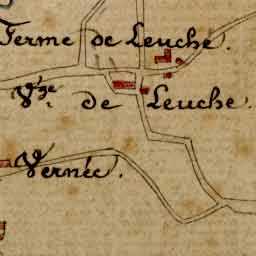 Ferme de Leuche.
Vge. de Leuche.
Vernée.